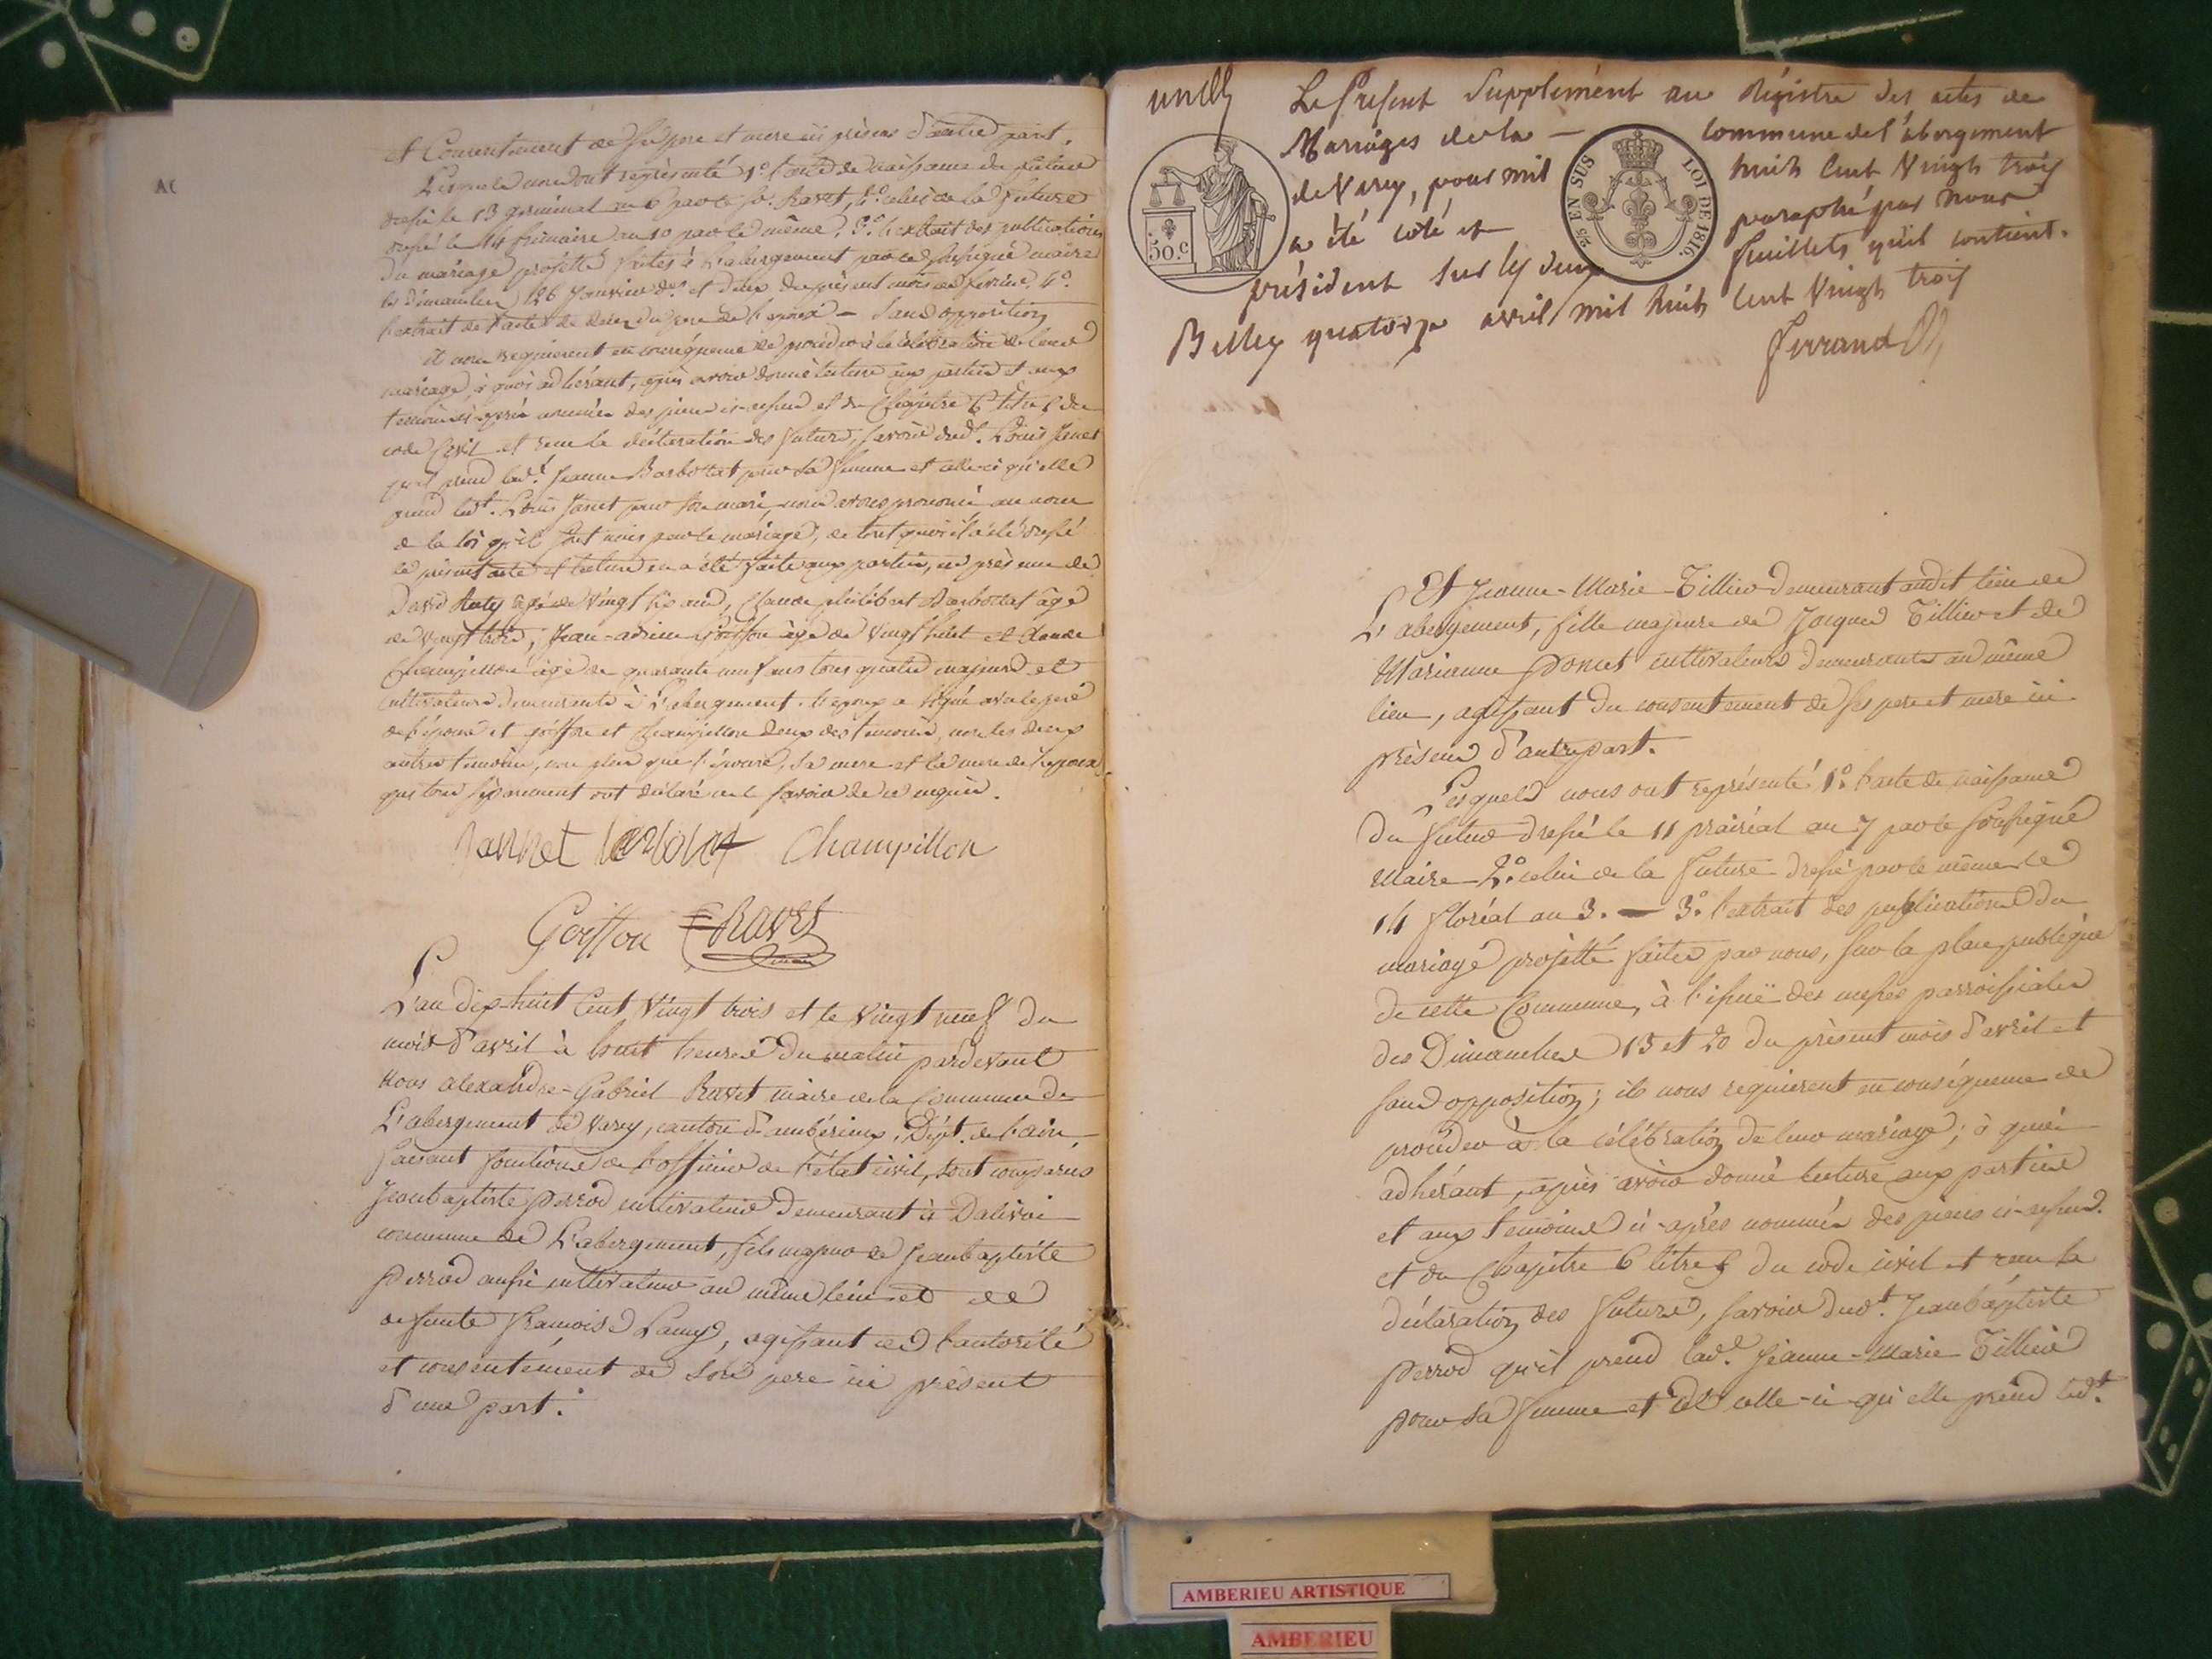 et Consentement de ses pere et mere ici présens d'autre part.
Lesquels nous ont représenté 1º l'acte de naissance du futur
dressé le 13 germinal an 6 par le Sr. Ravet, 2º celui de la future
dressé le 14 frimaire an 10 par le même, 3º l'extrait des publications
du mariage projetté faites à L'abergement par le soussigné maire
les dimanches 26 Janvier dr. et deux du présent mois de fevrier, 4º
l'extrait de l'acte de décès du pere de l'epoux — sans opposition
il nous requierent en conséquence de proceder à la célébration de leur
mariage, à quoi adhérant, après avoir donné lecture aux parties et aux
temoins ci-après nommés des pieces ci-dessus et du Chapitre 6 titre 5 du
code Civil et reçu la déclaration des futurs, savoir dudt. Louis Janet
qu'il prend ladt. Jeanne Barbollat pour sa femme et celle-ci qu'elle
prend ledt. Louis Janet pour son mari, nous avons prononcé au nom
de la loi qu'ils sont unis par le mariage, de tout quoi il a été dressé
le présent acte et lecture en a été faite aux parties, en présence de
David Ruty âgé de vingt six ans, Claude philibert Barbollat âgé
de vingt trois, Jean-adrien Goiffon âgé de vingt huit et Claude
Champillon âgé de quarante neuf ans tous quatre majeurs et
cultivateurs demeurants à L'abergement. L'epoux a signé avec le pere
de l'épouse et goiffon et Champillon deux des temoins, non les deux
autres temoins, non plus que l'épouse, sa mere et la mere de l'epoux,
qui tous séparément ont déclaré ne le savoir de ce enquis.
Jannet barbolat Champillon
Goiffon Ravet
L'an dix-huit Cent Vingt trois et le Vingt neuf du
mois d'avril à huit heures du matin pardevant
Nous alexandre-Gabriel Ravet maire de la Commune de
L'abergement de Varey, canton d'ambérieux, Dépt. de l'ain,
faisant fonctions de l'officier de l'état civil, sont comparus
Jeanbaptiste perrod cultivateur demeurant à Dalivoi
commune de L'abergement, fils majeur de Jeanbaptiste
Perrod aussi cultivateur au même lieu et de
defunte francoise Lamy, agissant de l'autorité
et consentément de son pere ici présent
d'une part.
un
Le Présent Supplément au Régistre des actes de
Mariages de la — commune de l'abergement
de Varey, pour mil huit Cent Vingt trois
a été coté et paraphé par nous
président sur les deux feuillets qu'il contient.
Belley quatorze avril mil huit Cent Vingt trois
Ferrand
50.C
2/5 EN SUS LOI DE 1816.
Et Jeanne-Marie Tillier demeurant audit lieu de
L'abergement, fille majeure de Jacques Tillier et de
Marianne Poncet cultivateurs demeurants au même
lieu, agissant du consentement de ses pere et mere ici
présens d'autre part.
Lesquels nous ont représenté 1º l'acte de naissance
du futur dressé le 11 prairéal an 7 par le soussigné
Maire 2º celui de la future dressé par le même le
14 floréal an 3. — 3º l'extrait des publications du
mariage projetté faites par nous, sur la place publique
de cette Commune, à l'issuë des messes parroissiales
des Dimanches 13 et 20 du présent mois d'avril et
sans opposition; ils nous requierent en conséquence de
proceder à la célébration de leur mariage; à quoi
adhérant, après avoir donné lecture aux parties
et aux temoins ci-après nommés des pieces ci-dessus
et du Chapitre 6 titre 5 du code civil et reçu la
déclaration des futurs, savoir dudt. Jeanbaptiste
perrod qu'il prend lade. Jeanne-Marie Tillier
pour sa femme et de celle-ci qu'elle prend ledt.
AMBERIEU ARTISTIQUE
AMBERIEU